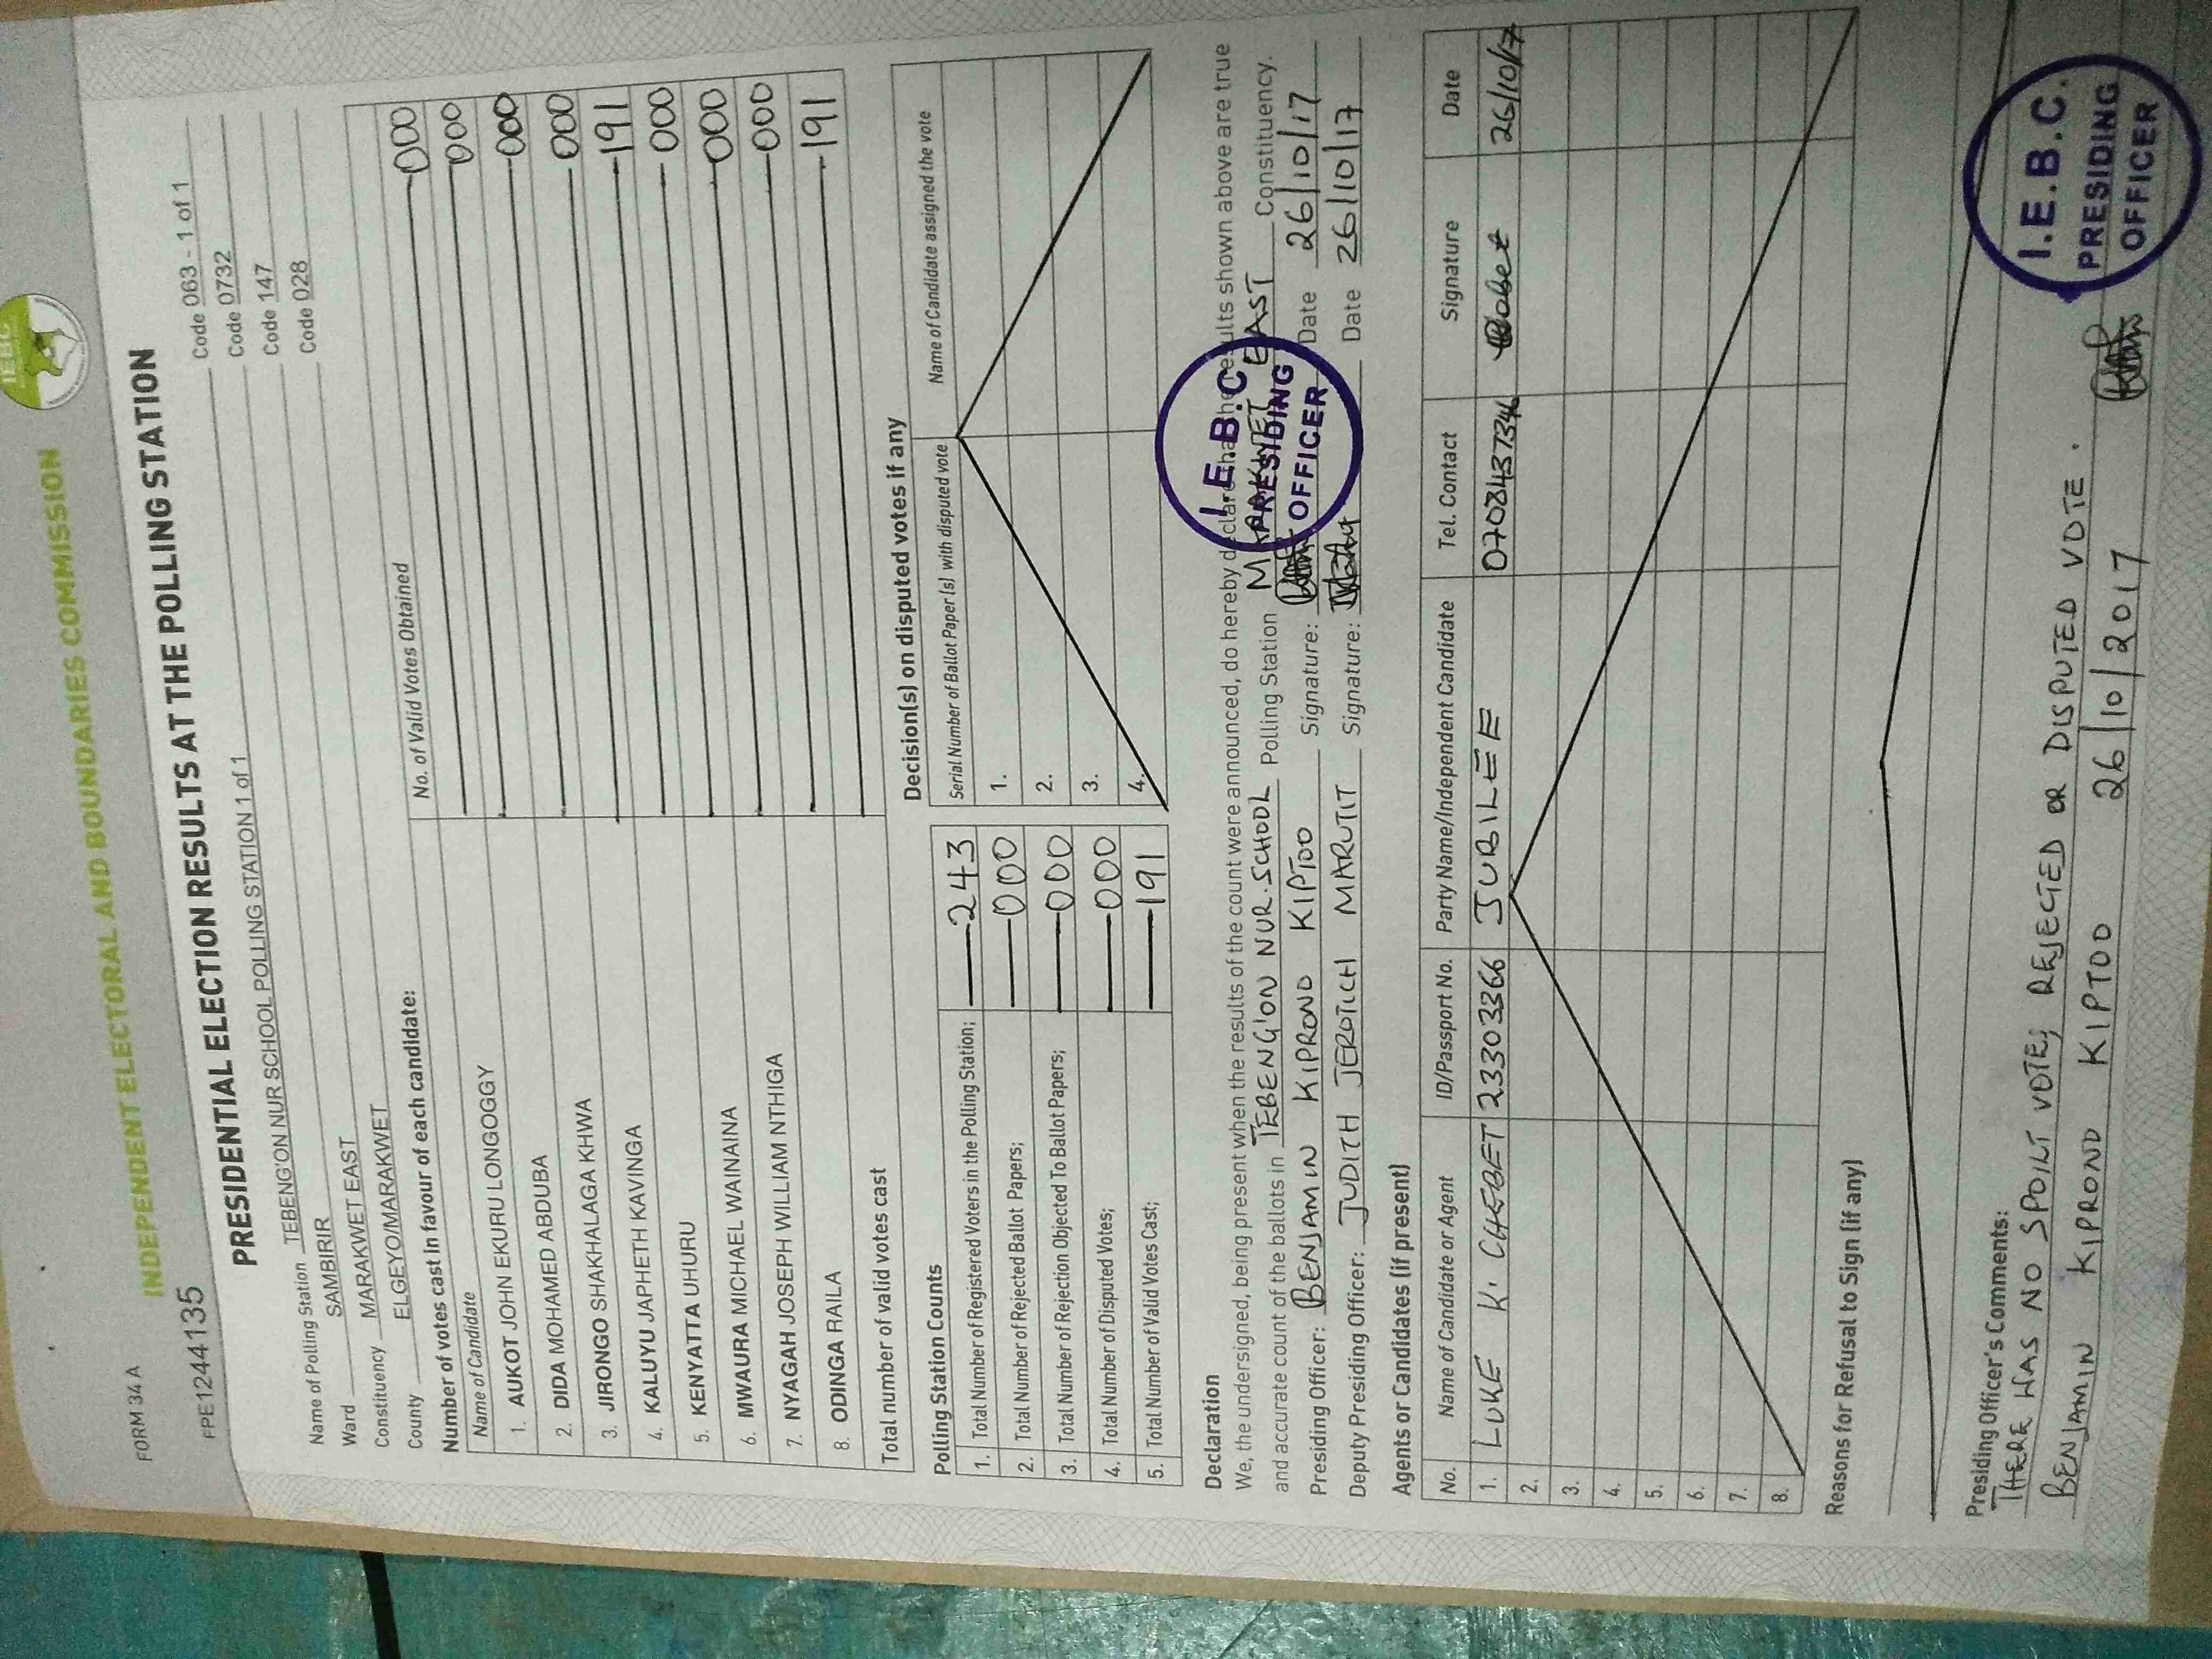 IEBC
INDEPENDENT ELECTORAL AND BOUNDARIES COMMISSION
FORM 34 A
FPE1244135
PRESIDENTIAL ELECTION RESULTS AT THE POLLING STATION
Name of Polling Station TEBENG'ON NUR SCHOOL POLLING STATION 1 of 1 Code 063 - 1 of 1
Ward SAMBIRIR Code 0732
Constituency MARAKWET EAST Code 147
County ELGEYO/MARAKWET Code 028
Number of votes cast in favour of each candidate:
Name of Candidate No. of Valid Votes Obtained
1. AUKOT JOHN EKURU LONGOGGY 000
2. DIDA MOHAMED ABDUBA 000
3. JIRONGO SHAKHALAGA KHWA 000
4. KALUYU JAPHETH KAVINGA 000
5. KENYATTA UHURU 191
6. MWAURA MICHAEL WAINAINA 000
7. NYAGAH JOSEPH WILLIAM NTHIGA 000
8. ODINGA RAILA 000
Total number of valid votes cast 191
Polling Station Counts
1. Total Number of Registered Voters in the Polling Station; 243
2. Total Number of Rejected Ballot Papers; 000
3. Total Number of Rejection Objected To Ballot Papers; 000
4. Total Number of Disputed Votes; 000
5. Total Number of Valid Votes Cast; 191
Decision(s) on disputed votes if any
Serial Number of Ballot Paper (s) with disputed vote Name of Candidate assigned the vote
1.
2.
3.
4.
Declaration
We, the undersigned, being present when the results of the count were announced, do hereby declare that the results shown above are true
and accurate count of the ballots in TEBENG'ON NUR. SCHOOL Polling Station MARAKWET EAST Constituency.
Presiding Officer: BENJAMIN KIPRONO KIPTOO Signature: Date 26/10/17
Deputy Presiding Officer: JUDITH JEROTICH MARUTIT Signature: Date 26/10/17
I.E.B.C
PRESIDING
OFFICER
Agents or Candidates (if present)
No. Name of Candidate or Agent ID/Passport No. Party Name/Independent Candidate Tel. Contact Signature Date
1. LUKE K. CHEBET 23303366 JUBILEE 0708437346 26/10/17
2.
3.
4.
5.
6.
7.
8.
Reasons for Refusal to Sign (if any)
Presiding Officer's Comments:
THERE WAS NO SPOILT VOTE, REJECTED OR DISPUTED VOTE.
BENJAMIN KIPRONO KIPTOO 26/10/2017
I.E.B.C.
PRESIDING
OFFICER